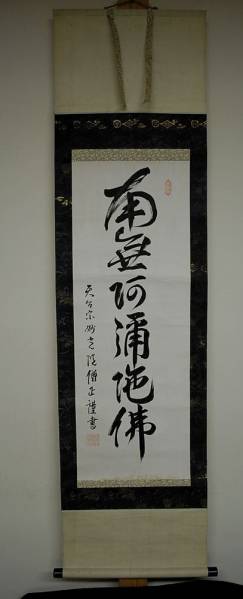 南無阿彌陀佛
天台宗妙光院僧正謹書